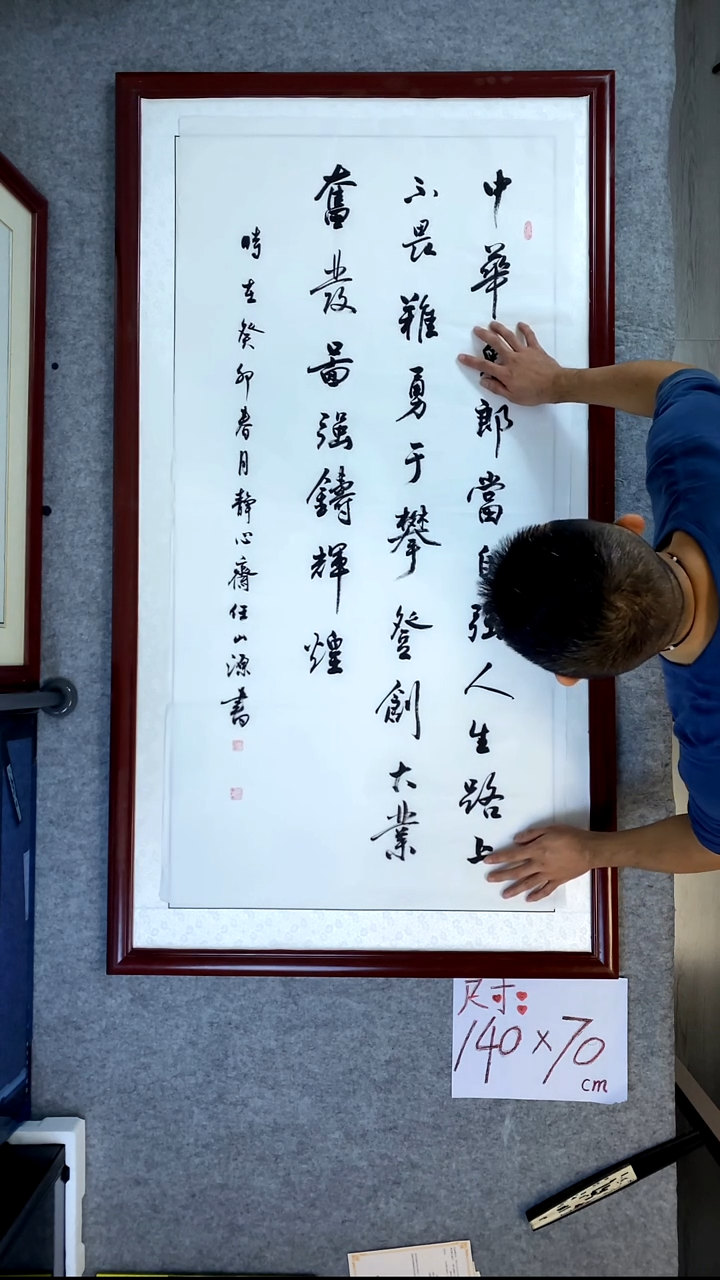 中華郎當自强人生路上
不畏難勇于攀登創大業
奮發圖强鑄輝煌
時在癸卯春月靜心齋任山源書
尺寸:
140×70
cm